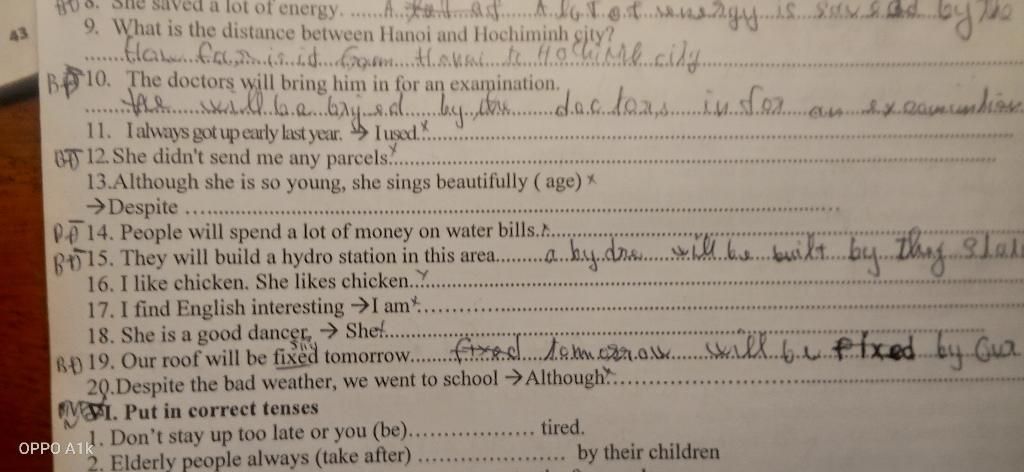 8. She saved a lot of energy. ...... A lot of energy is saved by the
43
9. What is the distance between Hanoi and Hochiminh city?
How far is id from Hanoi to HoChiMh city
BĐ 10. The doctors will bring him in for an examination.
the will be by ed by the doctors in for an examintion
11. I always got up early last year. → I used
BĐ 12. She didn't send me any parcels.
13.Although she is so young, she sings beautifully ( age)
→Despite
14. People will spend a lot of money on water bills.
BĐ 15. They will build a hydro station in this area. a by dro will be built by they
16. I like chicken. She likes chicken.
17. I find English interesting →I am
18. She is a good dancer, → She
BĐ 19. Our roof will be fixed tomorrow. fixed tomorrow will be fixed by Our
20.Despite the bad weather, we went to school →Although
VI. Put in correct tenses
1. Don't stay up too late or you (be)................. tired.
2. Elderly people always (take after) .................... by their children
OPPO A1k